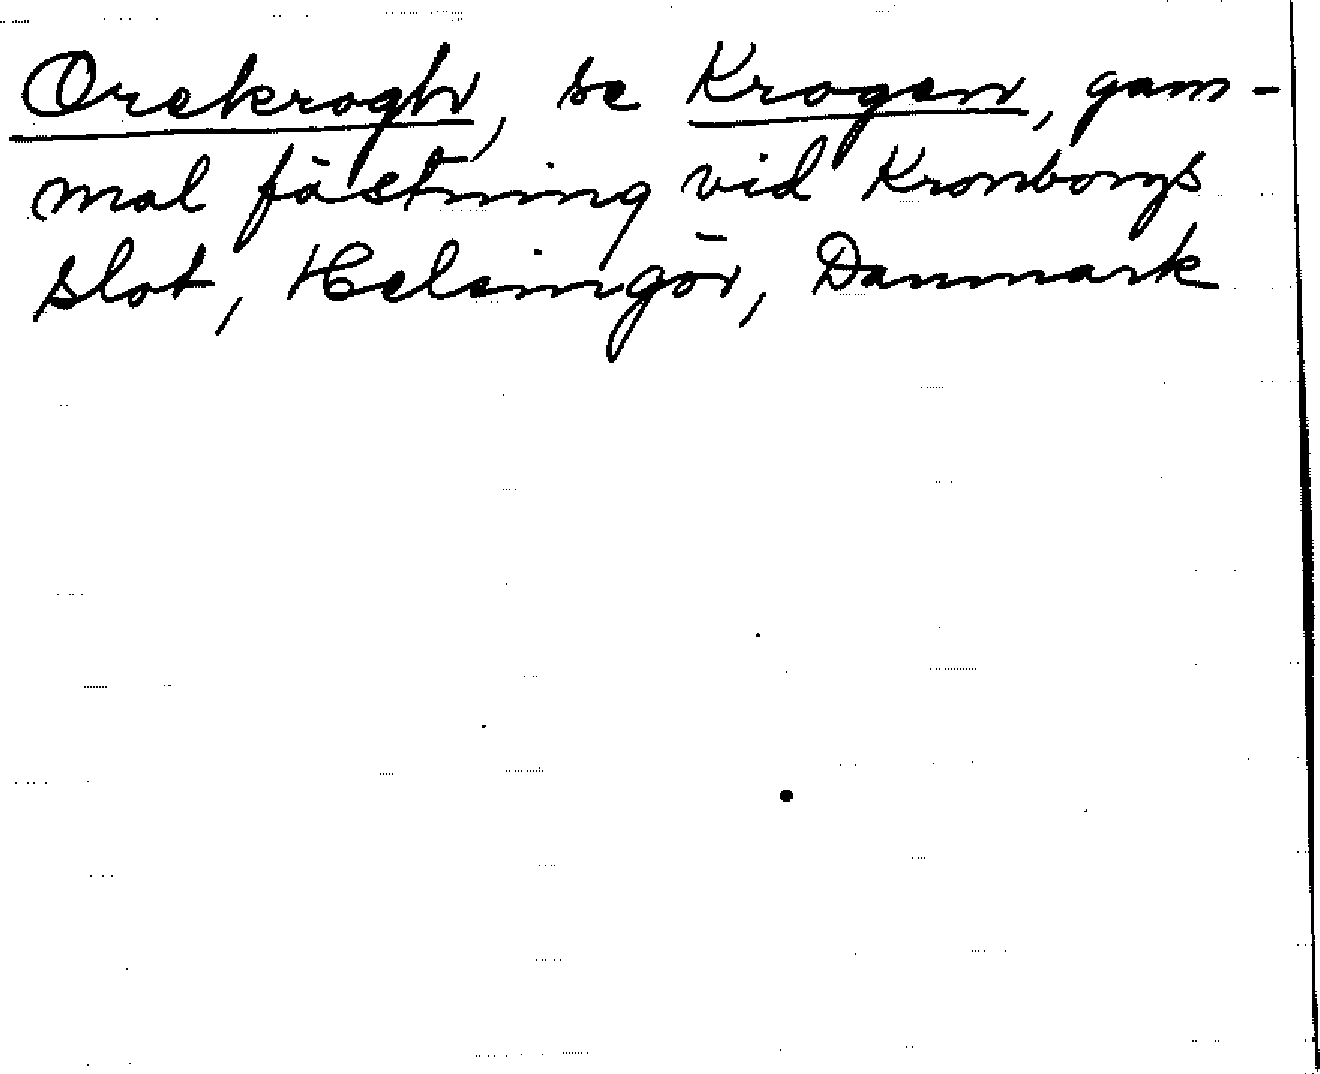 Orekrogh, se Krogen, gam-
mal fästning vid Kronborgs
slot, Helsingör, Danmark